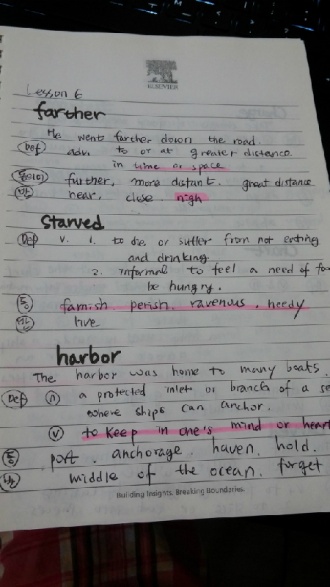 ELSEVIER
Lesson 6
farther
He went farther down the road
Def adv. to or at greater distance.
in time or space
동의어 further, more distant. great distance
반 near, close. nigh
Starved
Def v. 1. to die or suffer from not eating
and drinking.
2. informal to feel a need of
be hungry.
동 famish perish. ravenous. needy
반 live
harbor
The harbor was home to many boats.
Def n a protected inlet or branch of a
where ships can anchor.
v to keep in one's mind or heart
동 port. anchorage. haven. hold.
반 middle of the ocean. forget
Building Insights. Breaking Boundaries.